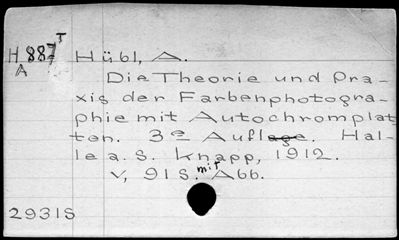 H 887 T Hübl, A.
A
Die Theorie und Pra-
xis der Farbenphotogra-
phie mit Autochromplat
ten. 3e Auflage. Hal-
le a. S. Knapp, 1912.
V, 91 S. mit Abb.
29315